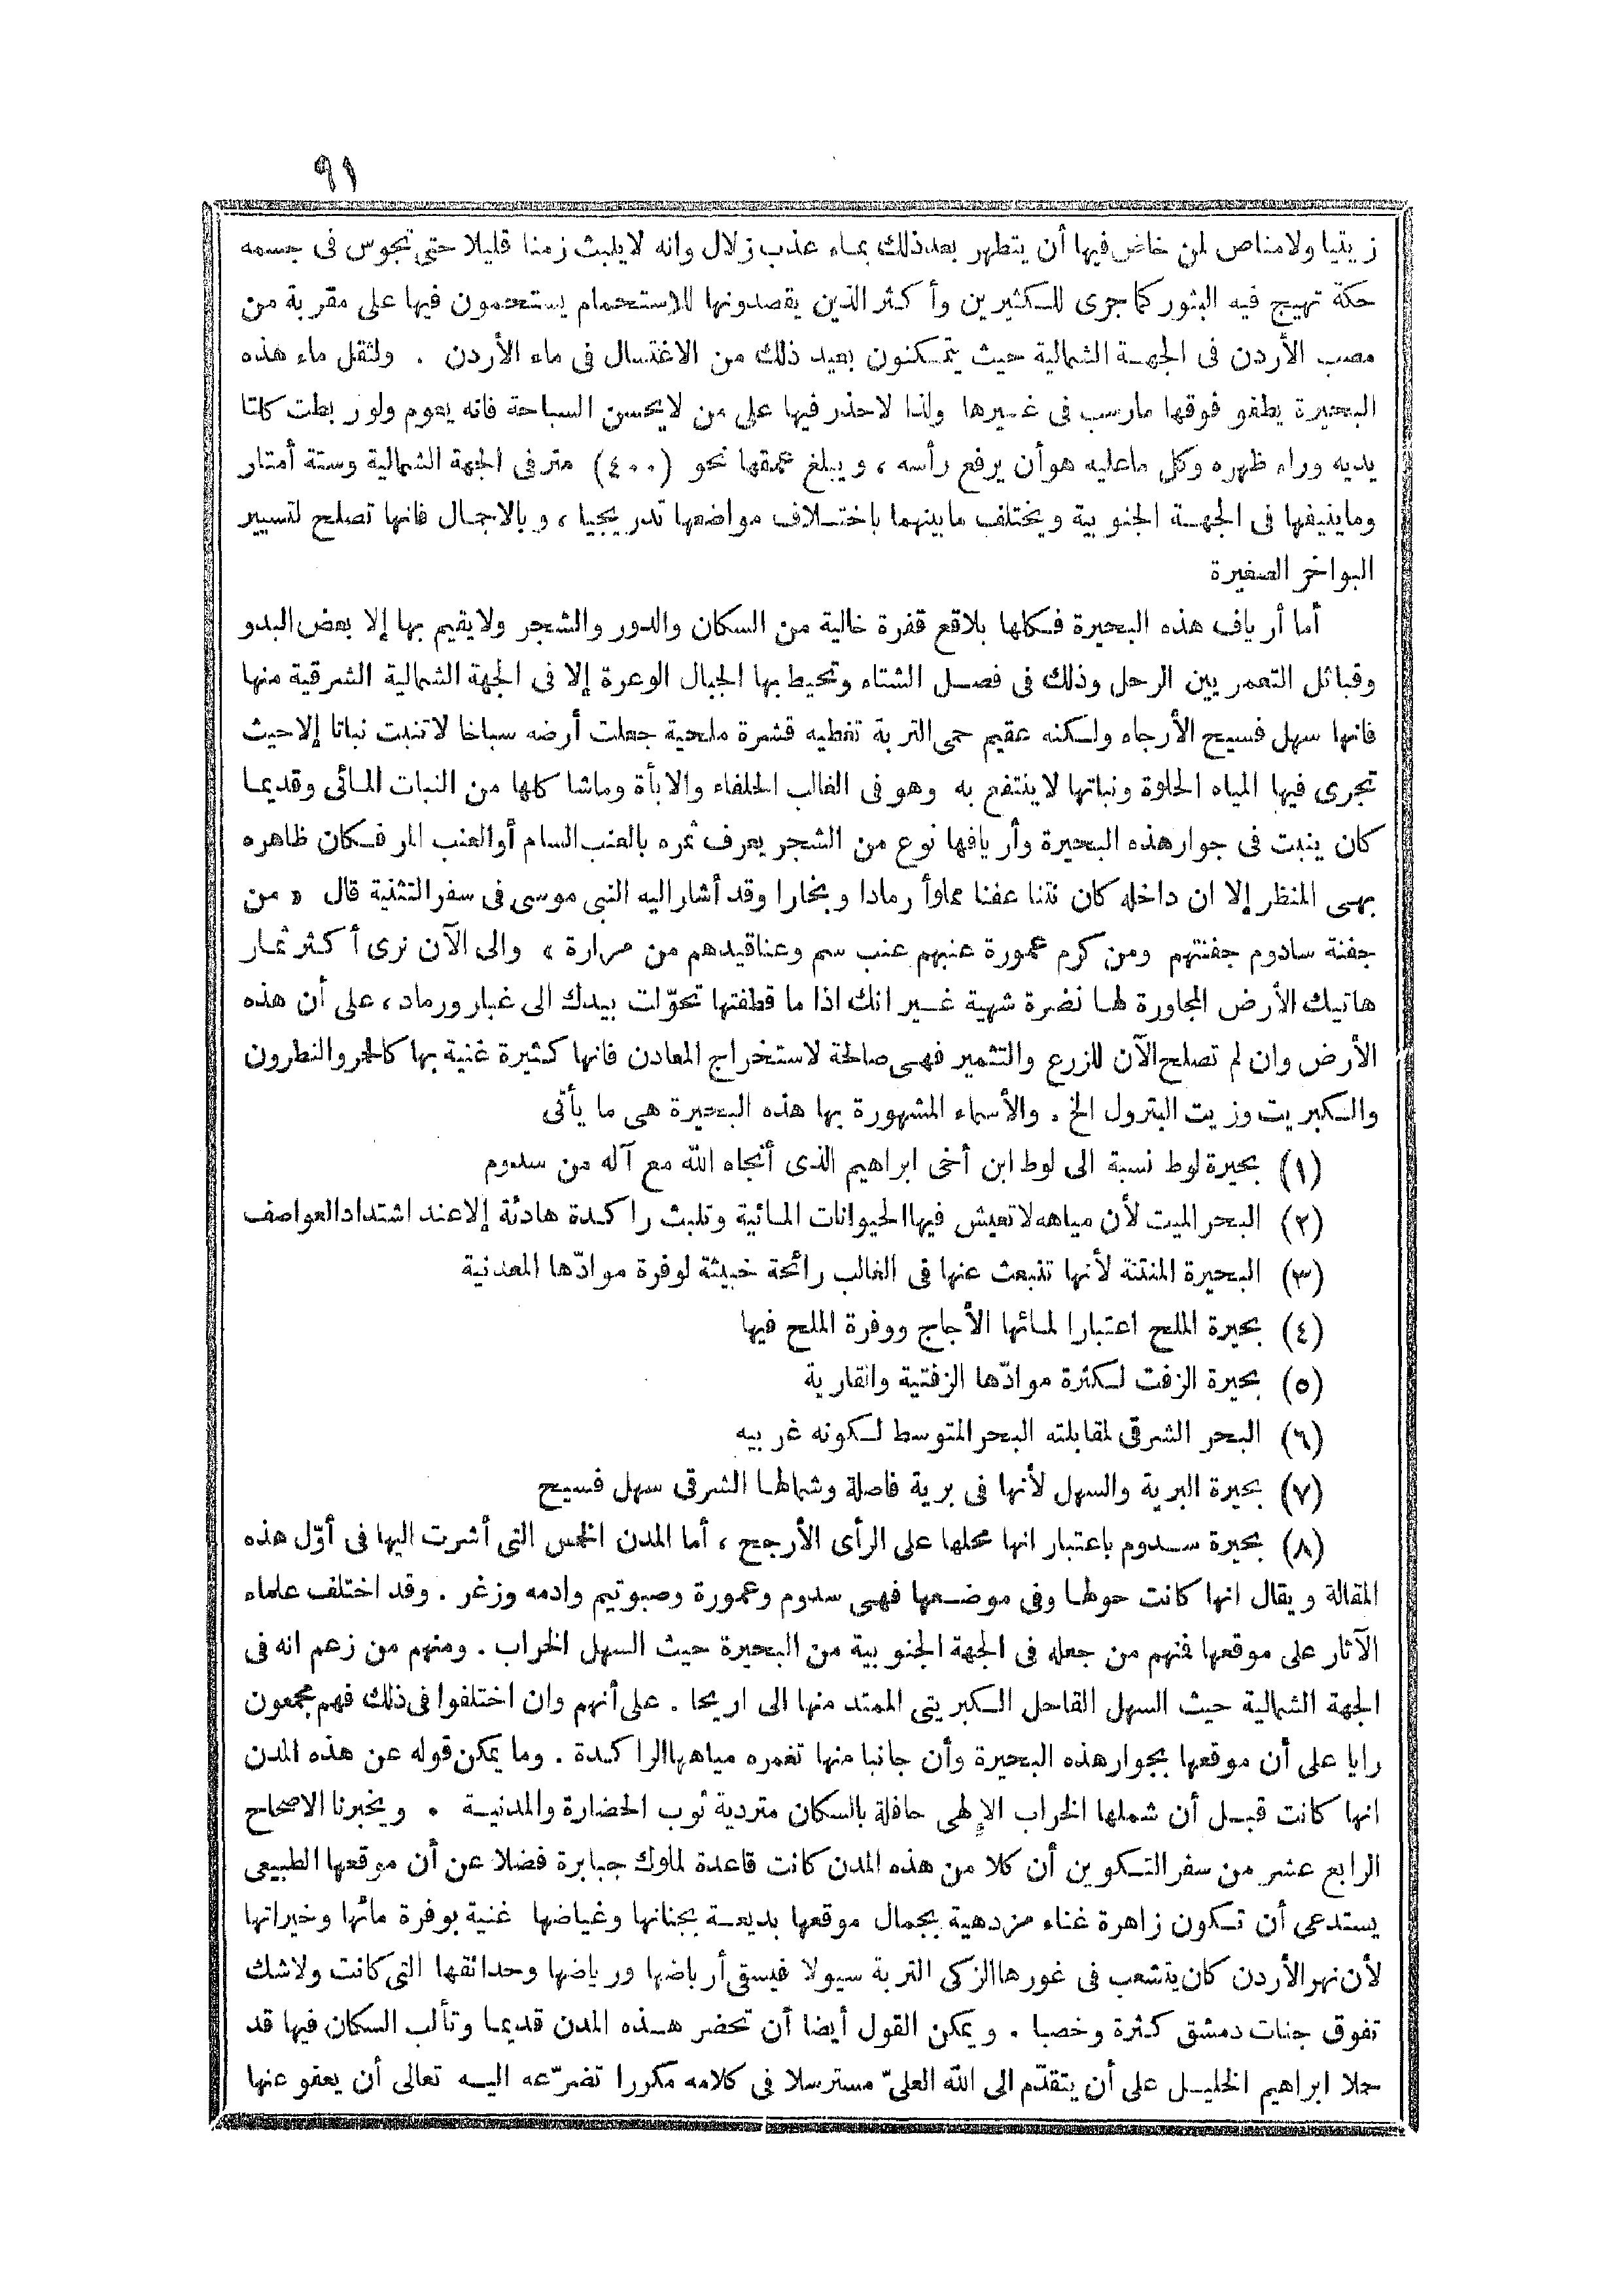 ٩١
زيتيا ولامناص لمن خاض فيها أن يتطهر بعدذلك بماء عذب زلال وانه لايلبث زمنا قليلا حتى تجوس فى جسمه
حكة تهيج فيه البثور كما جرى للكثيرين وأكثر الذين يقصدونها للاستحمام يستحمون فيها على مقربة من
مصب الأردن فى الجهة الشمالية حيث يتمكنون بعيد ذلك من الاغتسال فى ماء الأردن . ولثقل ماء هذه
البحيرة يطفو فوقها مارسب فى غيرها ولذا لاحذر فيها على من لايحسن السباحة فانه يعوم ولو ربطت كلتا
يديه وراء ظهره وكل ماعليه هو أن يرفع رأسه ، ويبلغ عمقها نحو (٤٠٠) متر فى الجهة الشمالية وستة أمتار
وماينيفها فى الجهة الجنوبية ويختلف مابينهما باختلاف مواضعها تدريجيا ، وبالاجمال فانها تصلح لتسيير
البواخر الصغيرة
أما أرياف هذه البحيرة فكلها بلاقع قفرة خالية من السكان والدور والشجر ولايقيم بها إلا بعض البدو
وقبائل التعمريين الرحل وذلك فى فصل الشتاء وتحيط بها الجبال الوعرة إلا فى الجهة الشمالية الشرقية منها
فانها سهل فسيح الأرجاء ولكنه عقيم حمى التربة تغطيه قشرة ملحية جعلت أرضه سباخا لاتنبت نباتا إلاحيث
تجرى فيها المياه الحلوة ونباتها لاينتفع به وهو فى الغالب الحلفاء والابأة وماشا كلها من النبات المائى وقديما
كان ينبت فى جوار هذه البحيرة وأريافها نوع من الشجر يعرف ثمره بالعنب السام أوالعنب المر فكان ظاهره
بهى المنظر إلا ان داخله كان نتنا عفنا مملوأ رمادا وبخارا وقد أشار اليه النبى موسى فى سفر التثنية قال « من
جفنة سادوم جفنتهم ومن كرم عمورة عنبهم عنب سم وعناقيدهم من مرارة » والى الآن نرى أكثر ثمار
هاتيك الأرض المجاورة لها نضرة شهية غير انك اذا ما قطفتها تحوّلت بيدك الى غبار ورماد ، على أن هذه
الأرض وان لم تصلح الآن للزرع والتثمير فهى صالحة لاستخراج المعادن فانها كثيرة غنية بها كالحمر والنطرون
والكبريت وزيت البترول الخ . والأسماء المشهورة بها هذه البحيرة هى ما يأتى
(١) بحيرة لوط نسبة الى لوط ابن أخى ابراهيم الذى أنجاه الله مع آله من سدوم
(٢) البحر الميت لأن مياهه لاتعيش فيها الحيوانات المائية وتلبث راكدة هادئة إلاعند اشتداد العواصف
(٣) البحيرة المنتنة لأنها تنبعث عنها فى الغالب رائحة خبيثة لوفرة موادّها المعدنية
(٤) بحيرة الملح اعتبارا لمائها الأجاج ووفرة الملح فيها
(٥) بحيرة الزفت لكثرة موادّها الزفتية والقارية
(٦) البحر الشرقى لمقابلته البحر المتوسط لكونه غربيه
(٧) بحيرة البرية والسهل لأنها فى برية قاحلة وشمالها الشرقى سهل فسيح
(٨) بحيرة سدوم باعتبار انها محلها على الرأى الأرجح ، أما المدن الخمس التى أشرت اليها فى أوّل هذه
المقالة ويقال انها كانت حولها وفى موضعها فهى سدوم وعمورة وصبوتيم وادمه وزغر . وقد اختلف علماء
الآثار على موقعها فمنهم من جعله فى الجهة الجنوبية من البحيرة حيث السهل الخراب . ومنهم من زعم انه فى
الجهة الشمالية حيث السهل القاحل الكبريتى الممتد منها الى اريحا . على أنهم وان اختلفوا فى ذلك فهم مجمعون
رايا على أن موقعها بجوار هذه البحيرة وأن جانبا منها تغمره مياهها الراكدة . وما يمكن قوله عن هذه المدن
انها كانت قبل أن شملها الخراب الإلهى حافلة بالسكان متردية ثوب الحضارة والمدنية . ويخبرنا الاصحاح
الرابع عشر من سفر التكوين أن كلا من هذه المدن كانت قاعدة لملوك جبابرة فضلا عن أن موقعها الطبيعى
يستدعى أن تكون زاهرة غناء مزدهية بجمال موقعها بديعة بجنانها وغياضها غنية بوفرة مائها وخيراتها
لأن نهر الأردن كان يتشعب فى غورها الزكى التربة سيولا فيسقى أرباضها ورياضها وحدائقها التى كانت ولاشك
تفوق جنات دمشق كثرة وخصبا . ويمكن القول أيضا أن تحضر هذه المدن قديما وتألب السكان فيها قد
حملا ابراهيم الخليل على أن يتقدّم الى الله العلىّ مسترسلا فى كلامه مكررا تضرّعه اليه تعالى أن يعفو عنها